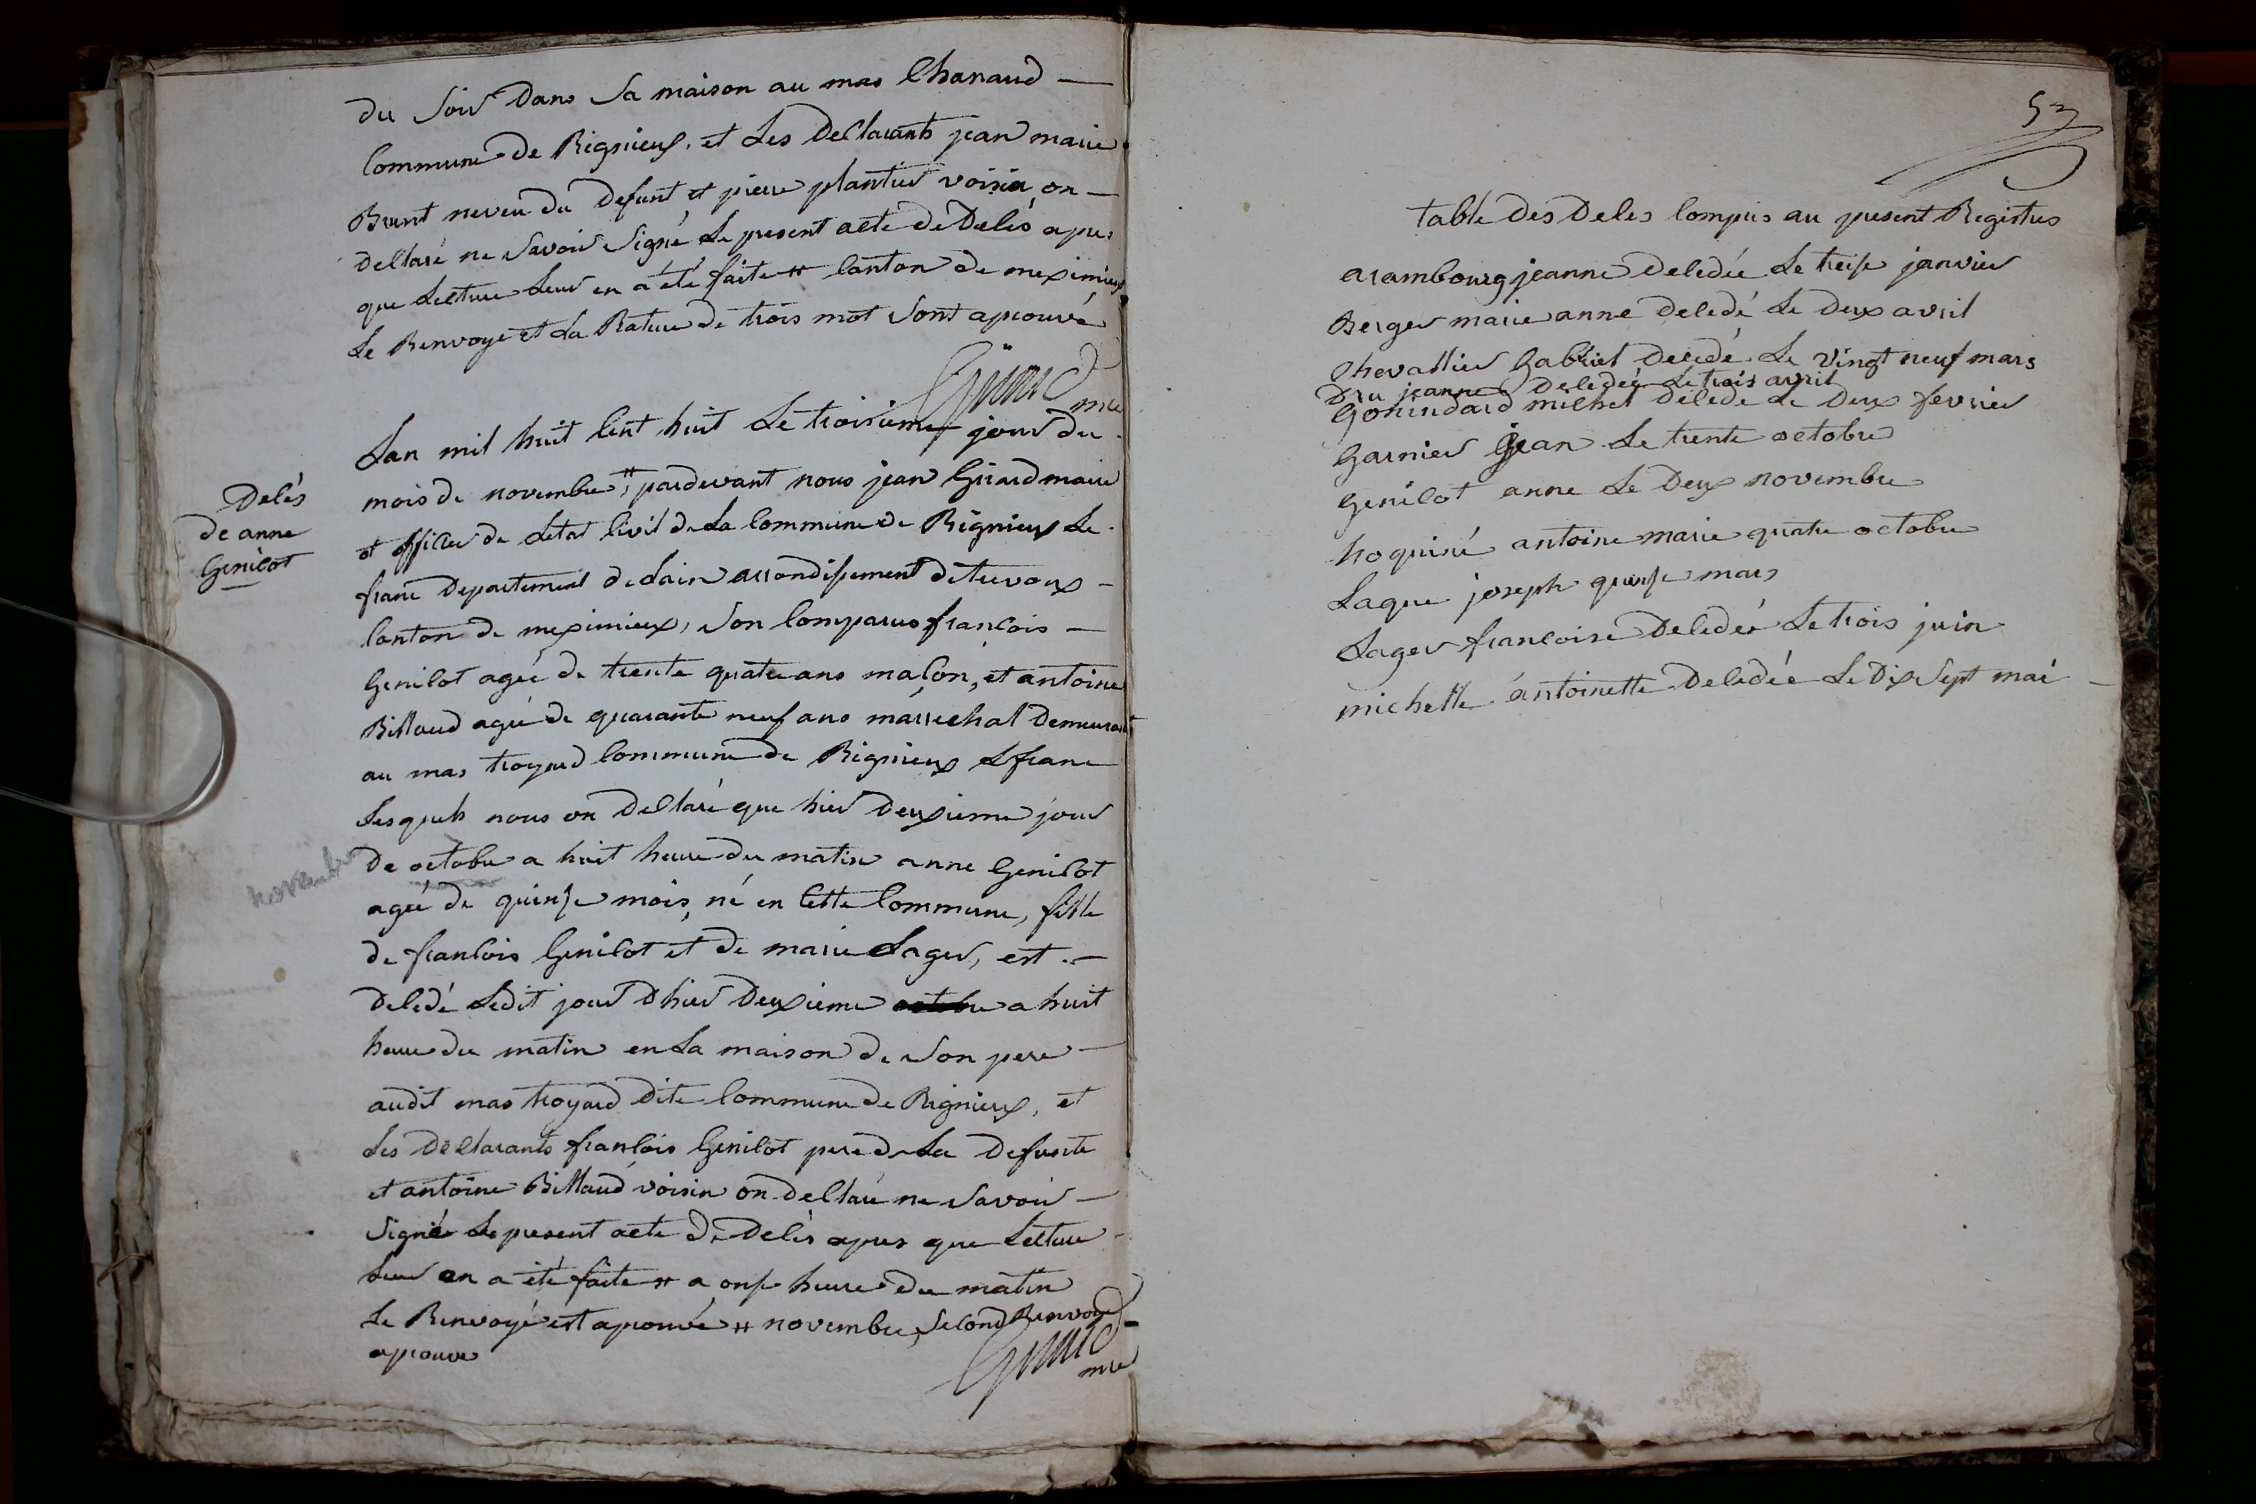 du soir dans sa maison au mas Chanaud
commune de Rignieux, et les declarants jean marie
Brunt neveu du defunt et pierre plantier voisin on
declaré ne savoir signé le present acte de decès apres
que lecture leur en a été faite # canton de meximieux
le Renvoye et la Rature de trois mot sont aprouvé
Girard
mre
Lan mil huit cent huit le troisieme jour du
mois de novembre, # pardevant nous jean Girard maire
et officier de letat civil de la commune de Rignieux le
franc departement de lain arrondissement de trevoux
canton de meximieux, son comparus francois
Genilot agée de trente quatre ans macon, et antoine
Billaud agée de quarante neuf ans marrechal demeurant
au mas troyard commune de Rignieux le franc
lesquels nous on declaré que hier deuxieme jour
de octobre a huit heure du matin anne Genilot
agée de quinze mois, né en cette commune, fille
de francois Genilot et de marie Lager, est
decedé ledit jour dhier deuxieme octobre a huit
heure du matin en la maison de son pere
audit mas troyard dite commune de Rignieux, et
les declarants francois Genilot pere de la defunte
et antoine Billaud voisin on declaré ne savoir
signé le present acte de decès apres que lecture
leur en a été faite # a onze heure du matin
le Renvoyé est aprouvé # novembre, second Renvoye
aprouve
Girard
mre
Decès
de anne
Genilot
novembre
53
table des deces compris au present Registres
arambourg jeanne decedée le treize janvier
Berger marie anne decedé le deux avril
Chevallier Gabriel decedé le vingt neuf mars
Dru jeanne decedeé le trois avril
Gonindard michel decedé le deux fevrier
Garnier jean le trente octobre
Genilot anne le deux novembre
hoquiné antoine marie quatre octobre
Laque joseph quinze mars
Lager francoise decedeé le trois juin
michelle antoinette decedée le dix sept mai